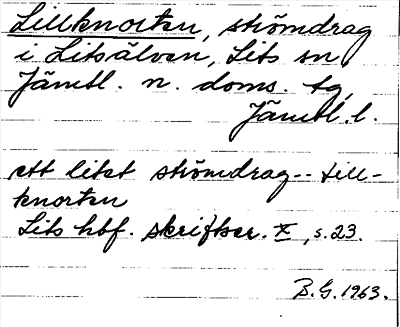 Lillknorten, strömdrag
i Litsälven, Lits sn
Jämtl. n. doms. tg,
Jämtl. l.
ett litet strömdrag -- Lill-
knorten
Lits hbf. skriftser. X, s. 23.
B. G. 1963.